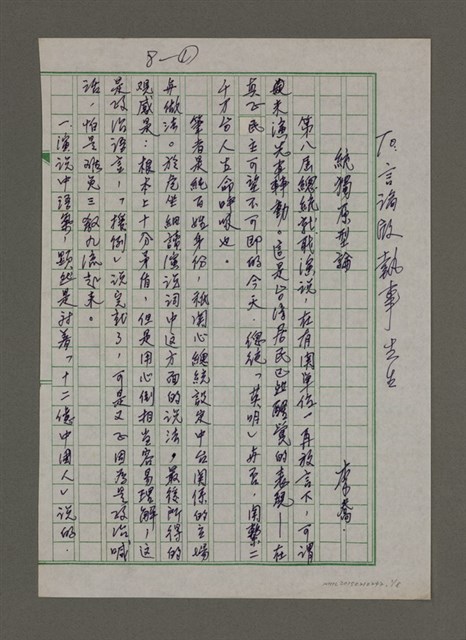 8-①
To.言論版執事先生
統獨原型論
李喬.
第八屆總統就職演說，在有關單位一再放言下，可謂
與未演先轟動。這是台灣居民已然醒覺的表現——在
真正民主可望不可即的今天，總統「英明」與否，關繫二
千萬台人生命呼吸也。
筆者是純百姓身份，秖關心總統設定中台關係的立場
與做法。於是坐細讀演說詞中這方面的說法。最後所得的
觀感是：根本上十分矛盾，但是用心倒相當容易理解，這
是政治語言，「擺倒」說完就了，可是又正因為是政治喊
話，怕是難免三教九流起來。
一演說中語氣，顯然是對着「十二億中國人」說的.